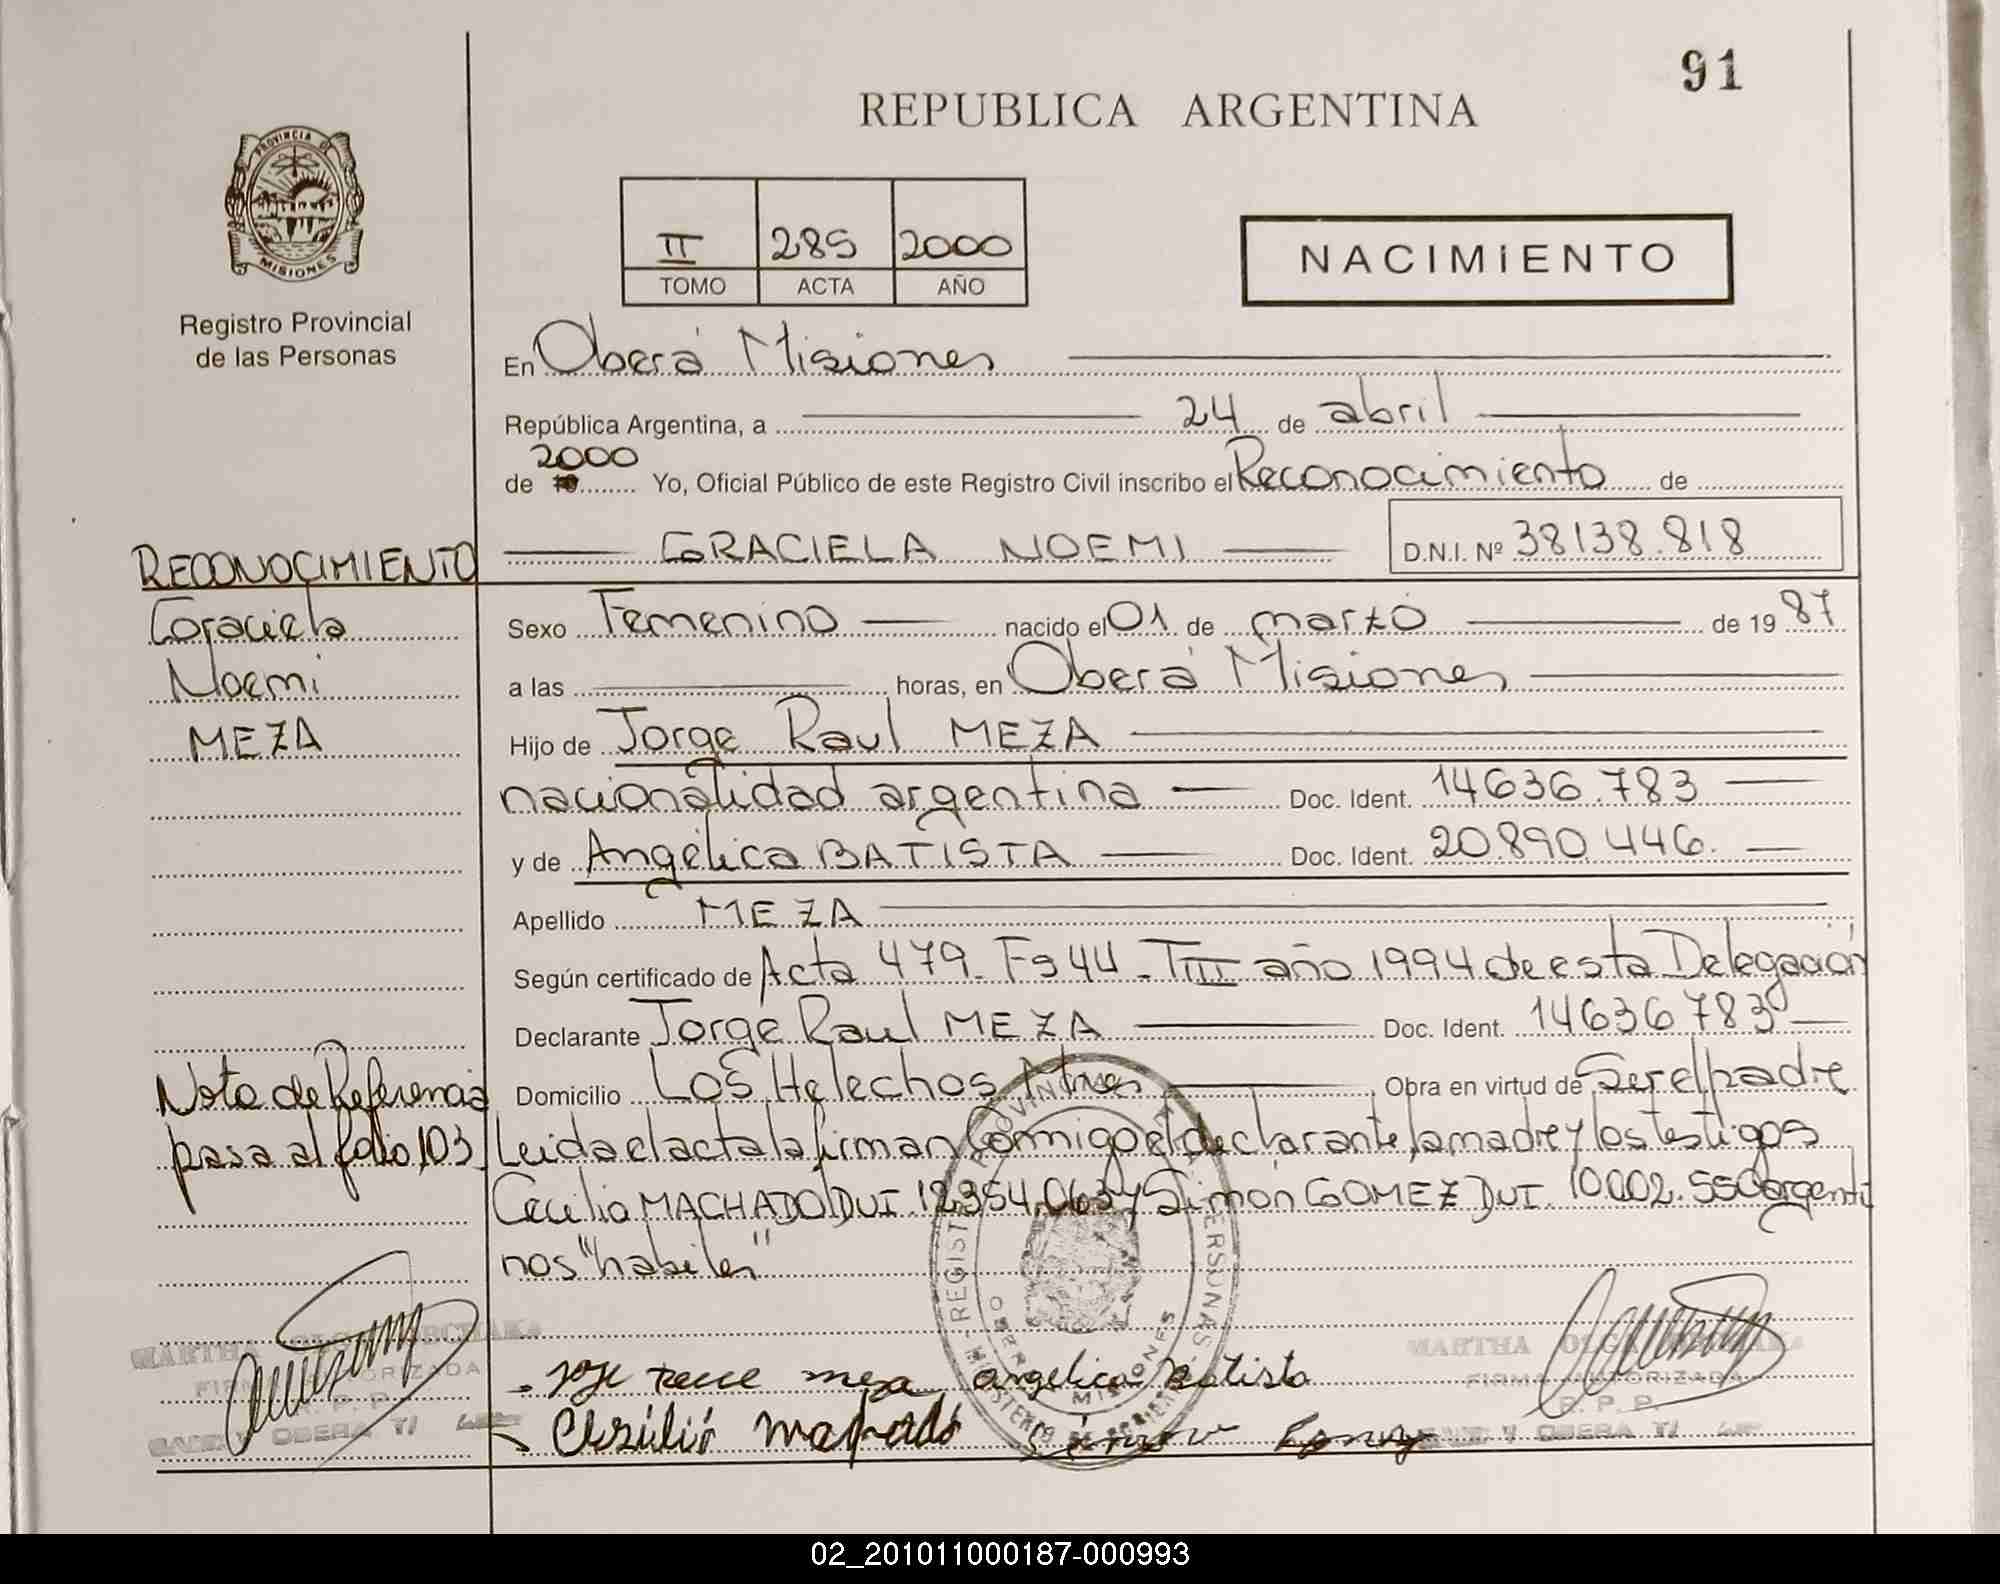 91
REPUBLICA ARGENTINA
PROVINCIA DE
MISIONES
Registro Provincial
de las Personas
II 285 2000
TOMO ACTA AÑO
NACIMiENTO
En Oberá Misiones
República Argentina, a 24 de abril
2000
de 19 Yo, Oficial Público de este Registro Civil inscribo el Reconocimiento de
GRACIELA NOEMI D.N.I. Nº 38138.818
RECONOCIMIENTO
Graciela
Noemi
MEZA
Sexo Femenino nacido el 01 de marzo de 1987
a las horas, en Oberá Misiones
Hijo de Jorge Raul MEZA
nacionalidad argentina Doc. Ident. 14636.783
y de Angélica BATISTA Doc. Ident. 20.890.446.
Apellido MEZA
Según certificado de Acta 479- Fs 44 - TIII año 1994 de esta Delegación
Declarante Jorge Raul MEZA Doc. Ident. 14636783
Domicilio Los Helechos, Mnes Obra en virtud de Ser el padre
Nota de Referencia
pasa al folio 103
Leida el acta la firman conmigo el declarante, la madre y los testigos
Cecilia MACHADO DUI. 12.354.063 y Simón GOMEZ DUI. 10.002.550 argenti
nos "habiles"
MARTHA OLGA
FIRMA AUTORIZADA
R. P. P.
OBERA
meza angelica Batista
MARTHA OLGA
FIRMA AUTORIZADA
R. P. P.
OBERA
MISIONES
02_201011000187-000993